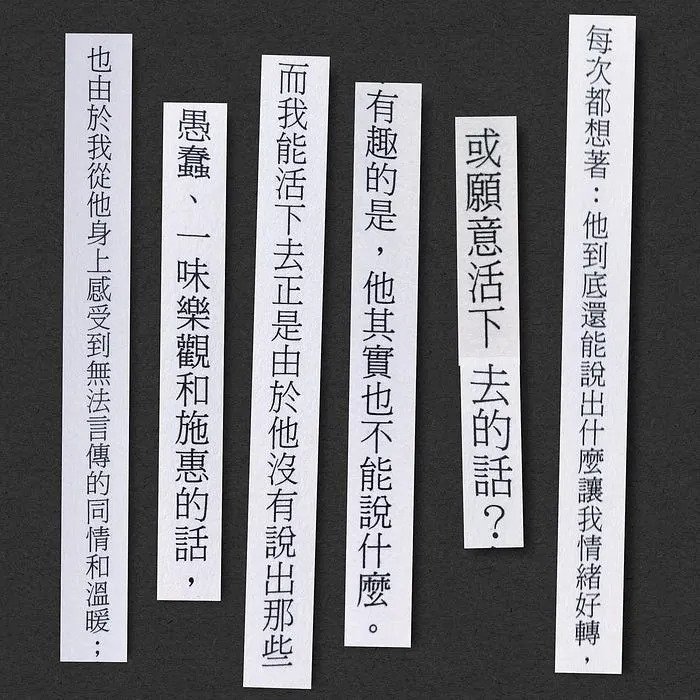 每次都想著：他到底還能說出什麼讓我情緒好轉，
或願意活下去的話？
有趣的是，他其實也不能說什麼。
而我能活下去正是由於他沒有說出那些
愚蠢、一味樂觀和施惠的話，
也由於我從他身上感受到無法言傳的同情和溫暖；